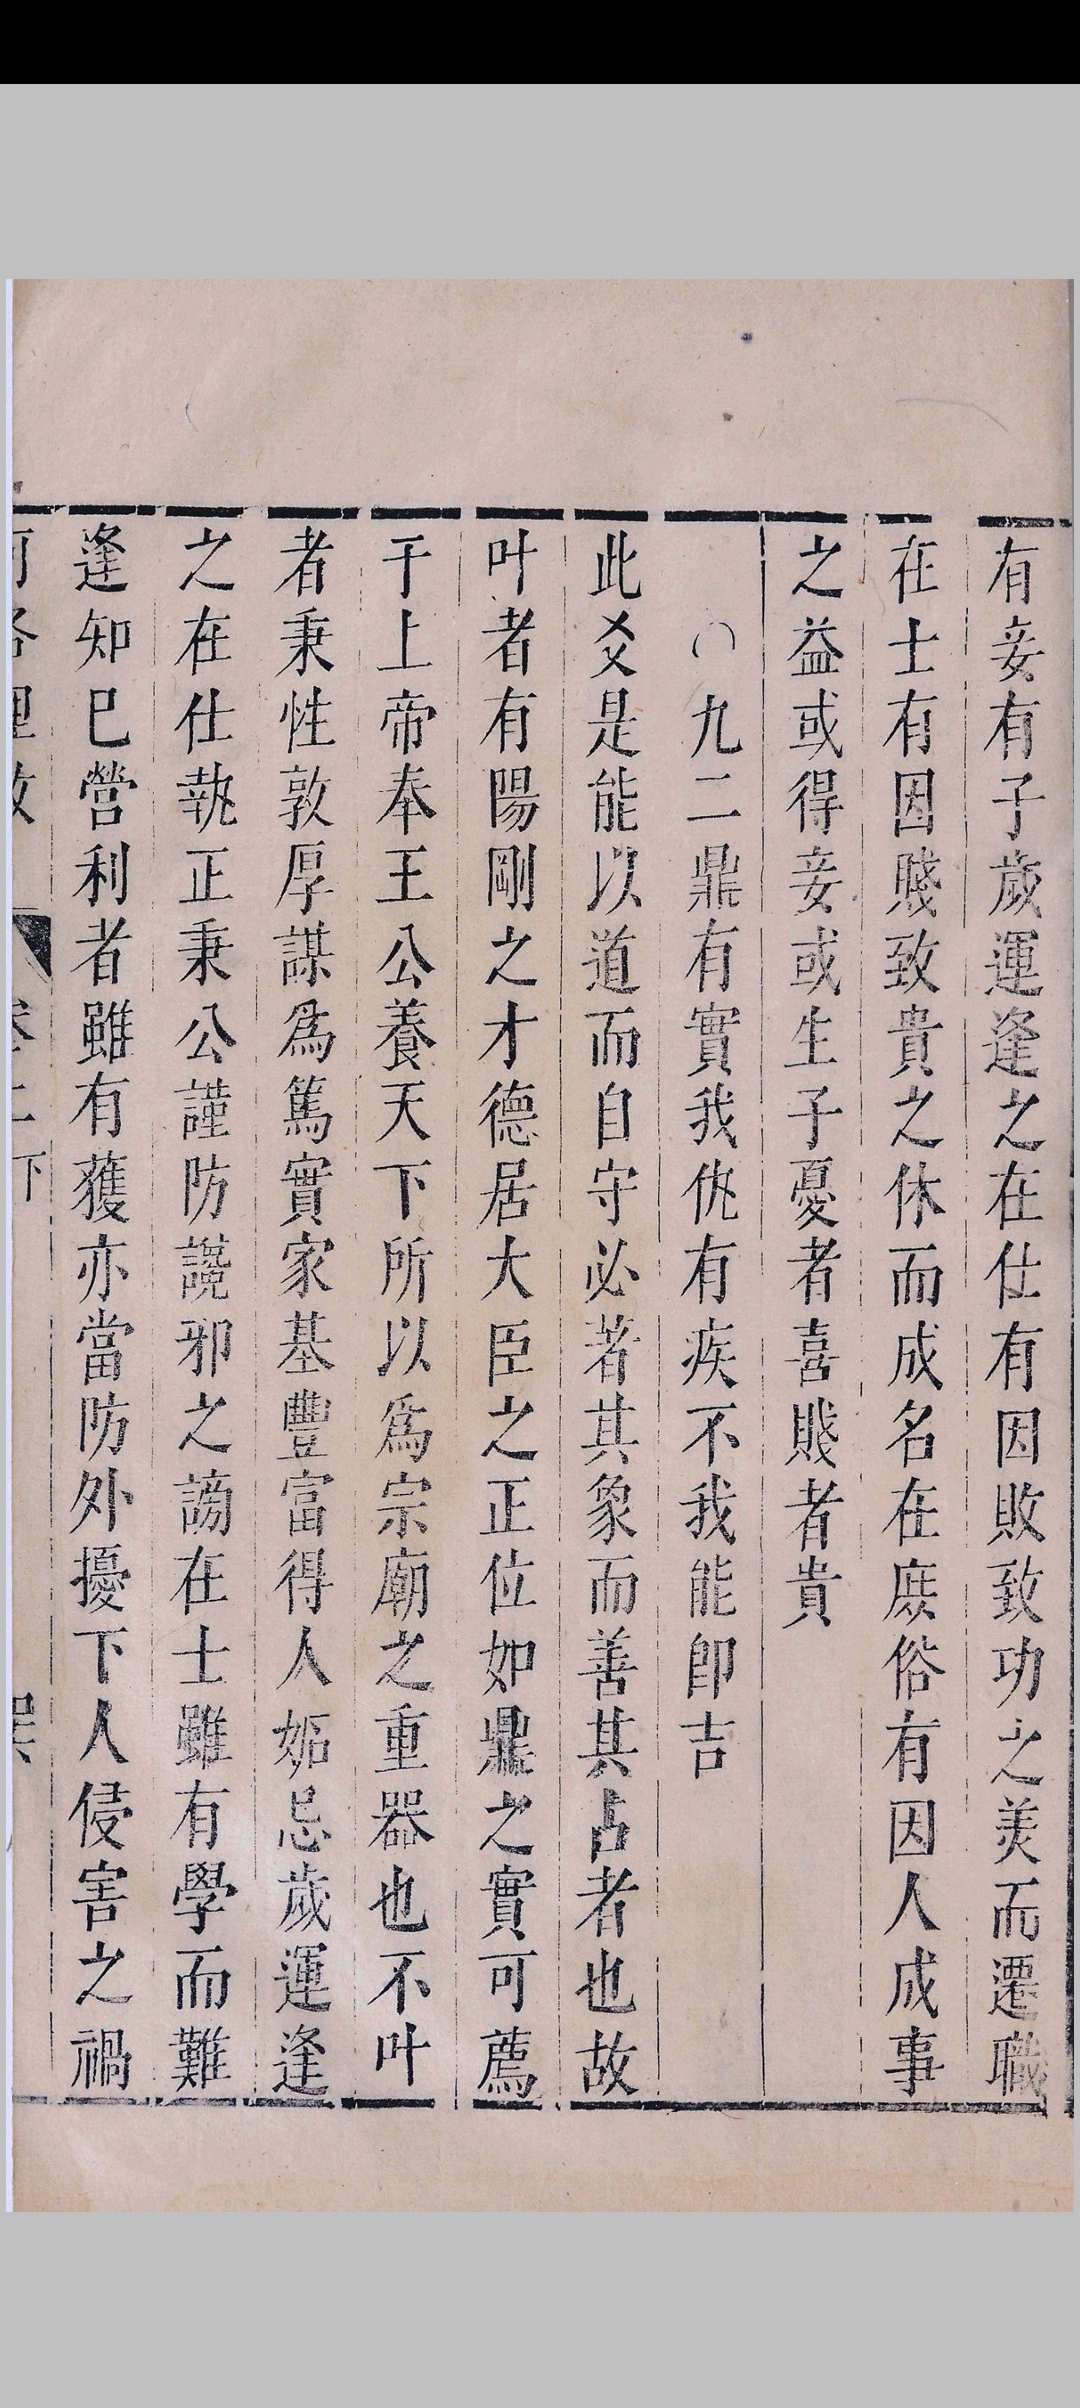 有妾有子歲運逢之在仕有因敗致功之羙而遷職
在士有因賤致貴之休而成名在庻俗有因人成事
之益或得妾或生子憂者喜賤者貴
○九二鼎有實我仇有疾不我能卽吉
此爻是能以道而自守必著其象而善其占者也故
叶者有陽剛之才德居大臣之正位如鼎之實可薦
于上帝奉王公養天下所以爲宗廟之重器也不叶
者秉性敦厚謀爲篤實家基豐富得人妬忌歲運逢
之在仕執正秉公謹防讒邪之謗在士雖有學而難
逢知巳營利者雖有獲亦當防外擾下人侵害之禍